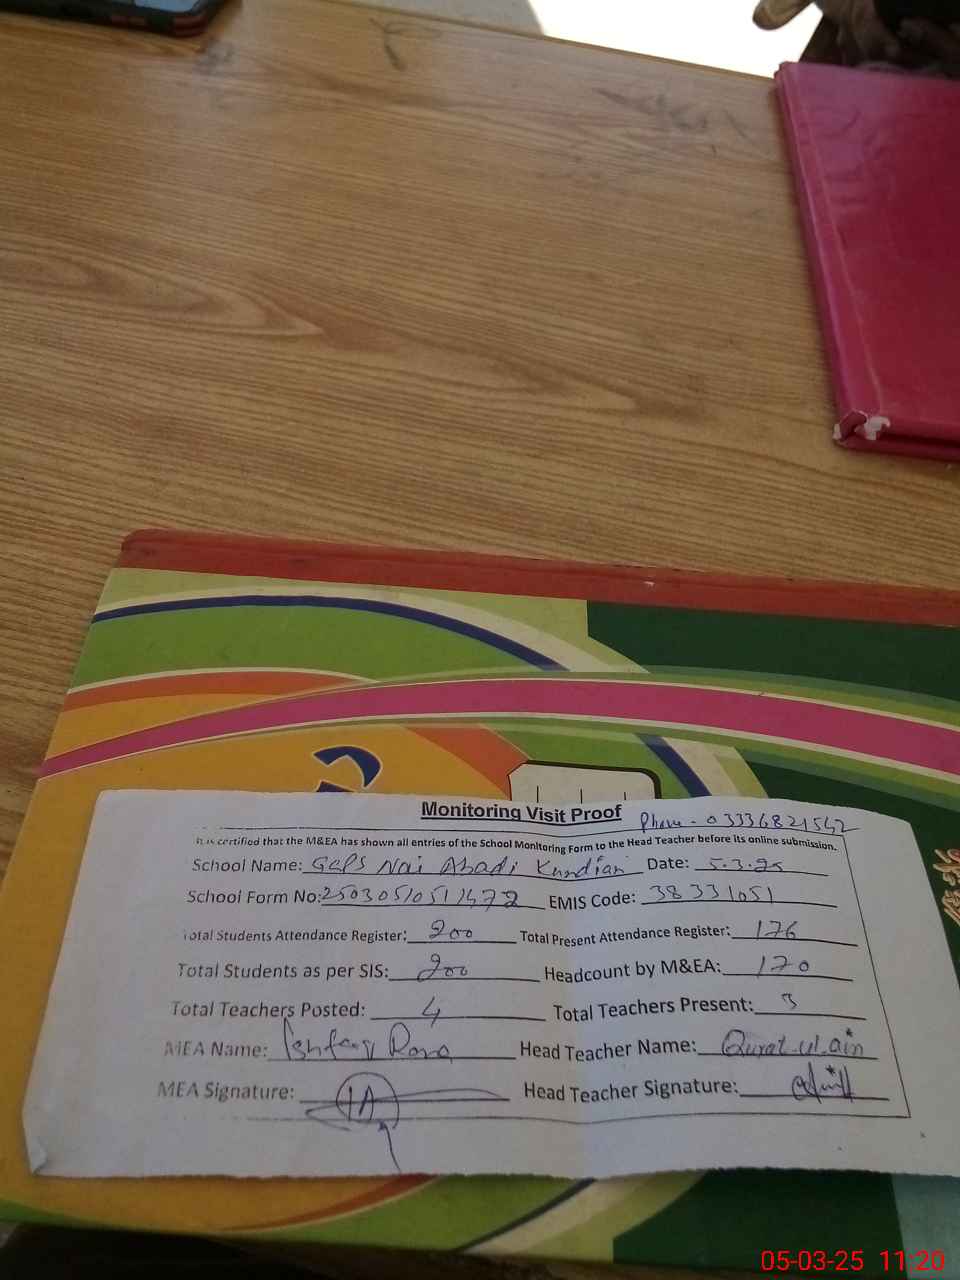 Monitoring Visit Proof
Phone - 03336821542
It is certified that the M&EA has shown all entries of the School Monitoring Form to the Head Teacher before its online submission.
School Name: GGPS Nai Abadi Kundian Date: 5.3.25
School Form No: EMIS Code: 38331051
Total Students Attendance Register: 200 Total Present Attendance Register: 176
Total Students as per SIS: 200 Headcount by M&EA: 170
Total Teachers Posted: 4 Total Teachers Present: 3
MEA Name: Head Teacher Name: Qurat-ul-ain
MEA Signature: IA Head Teacher Signature:
05-03-25 11:20